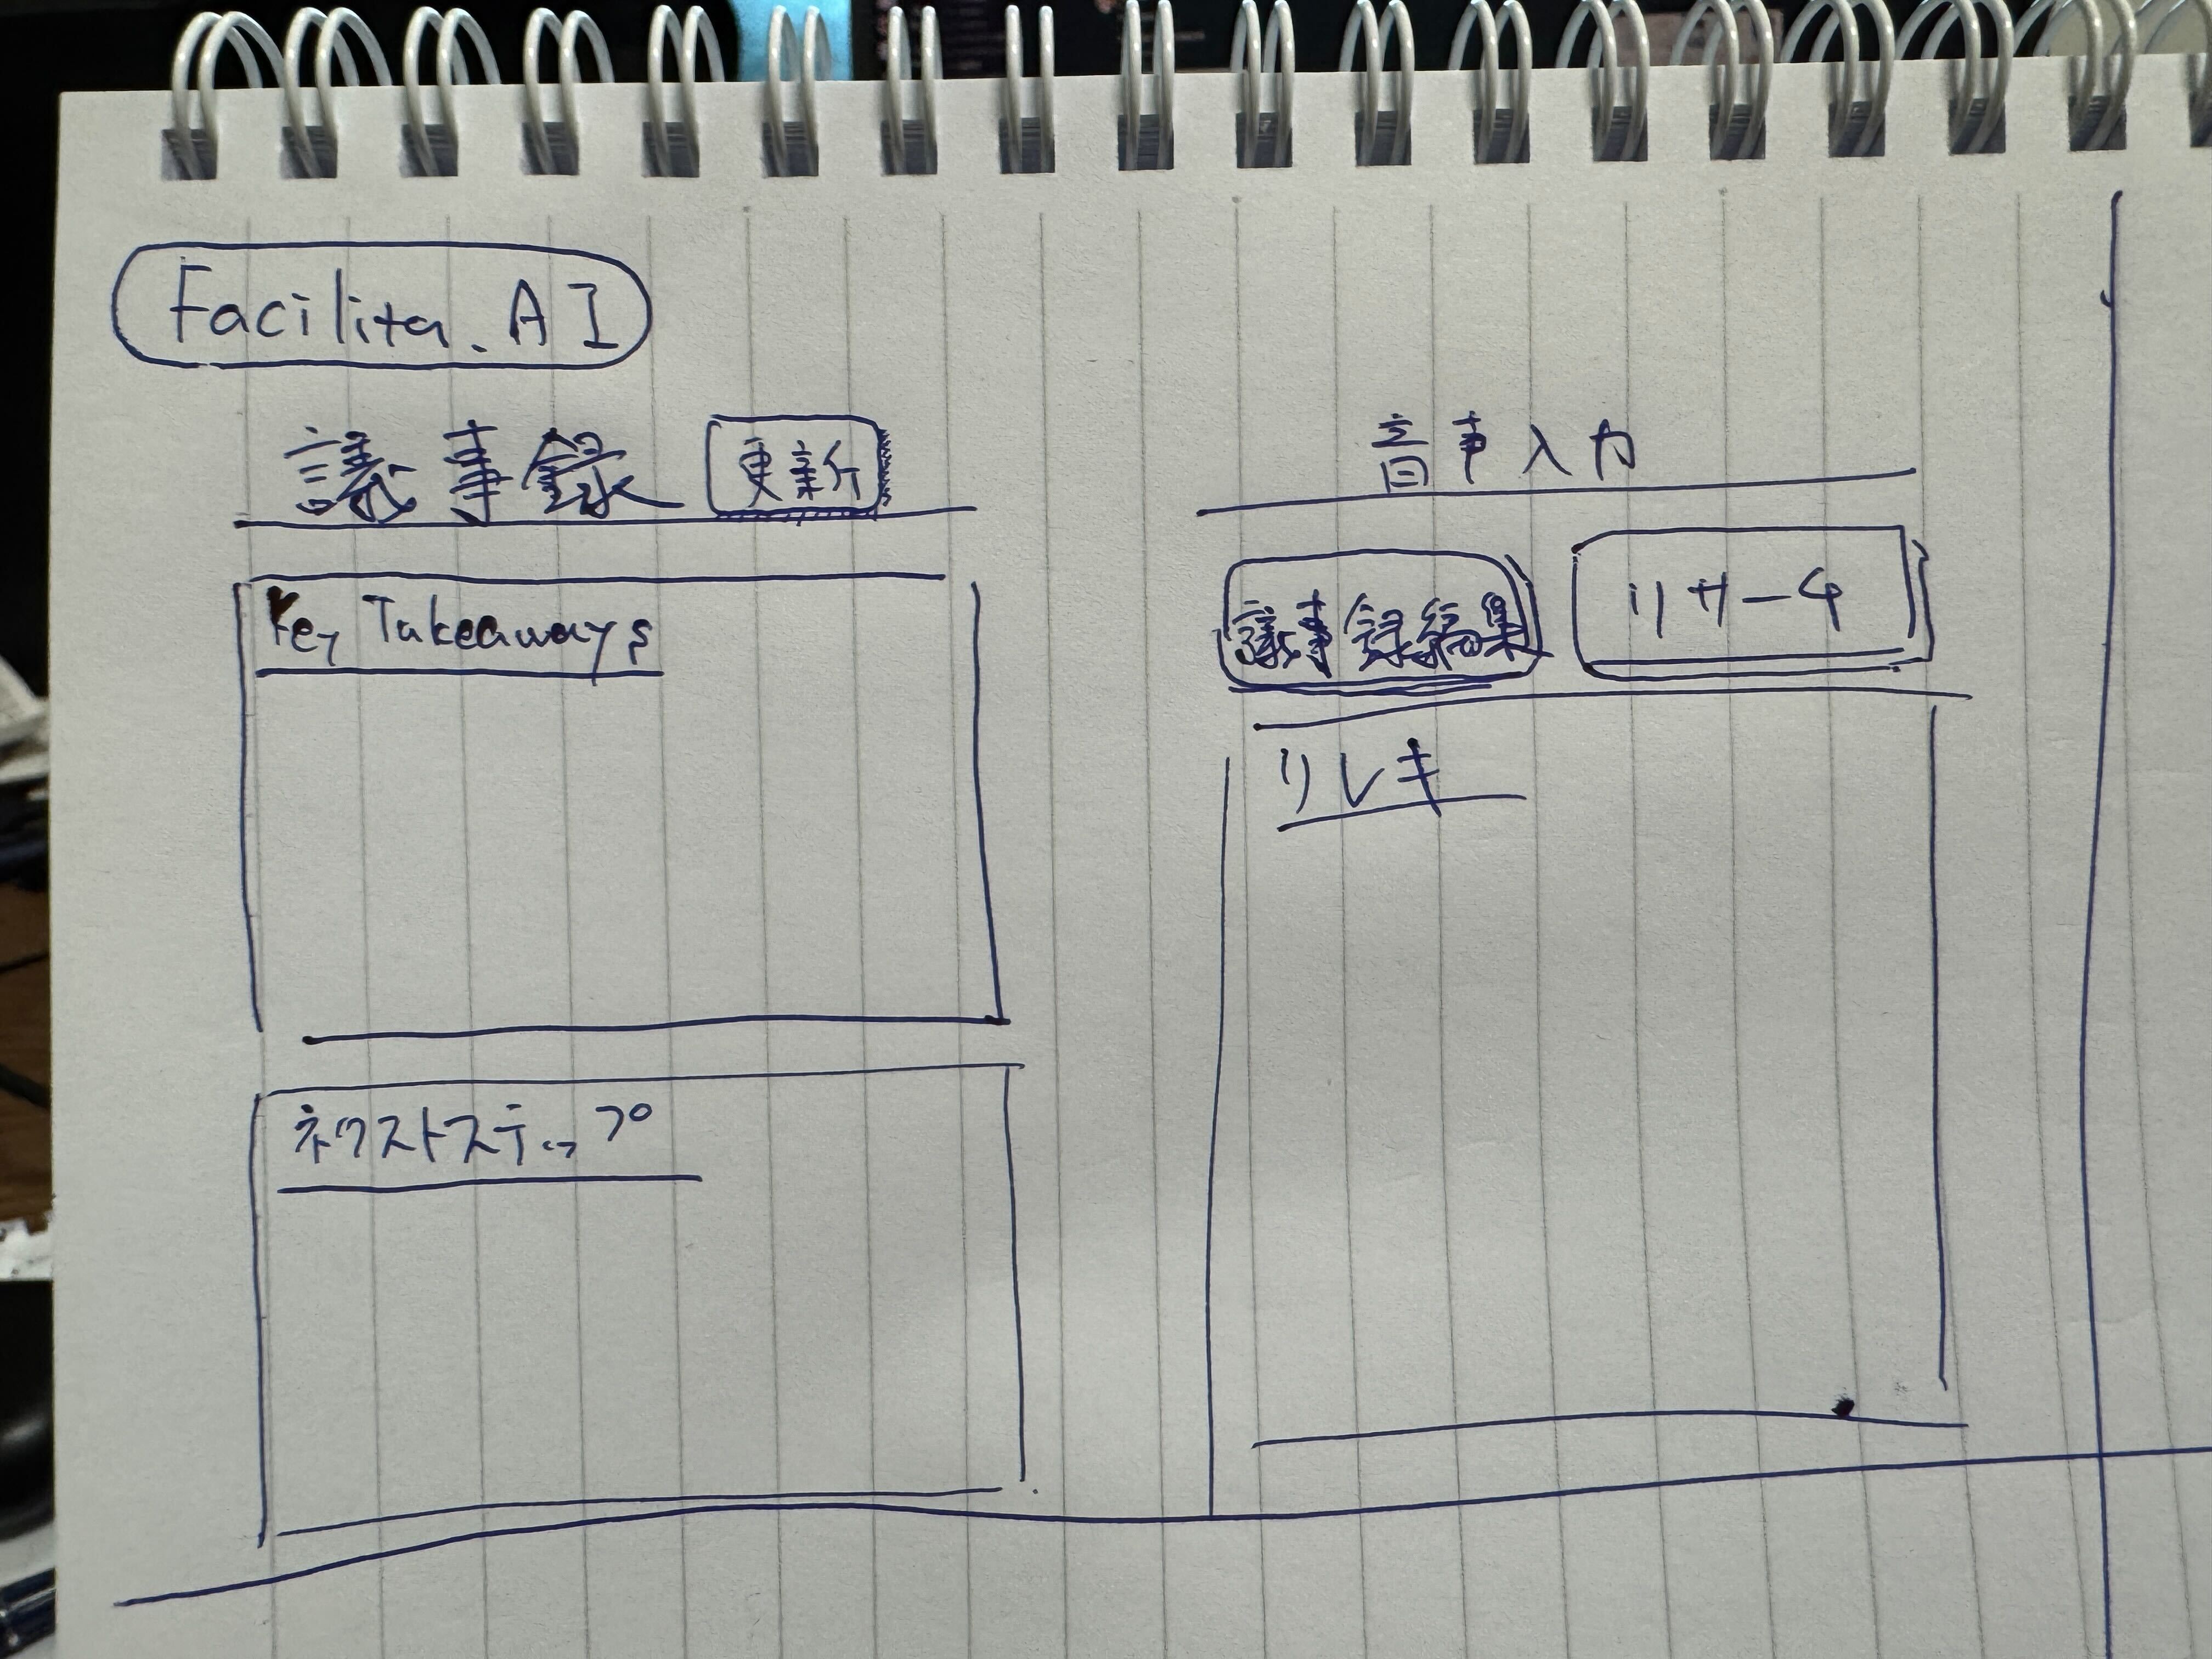 Facilita.AI
議事録 更新
Key Takeaways
ネクストステップ
音声入力
議事録編集 リサーチ
リレキ